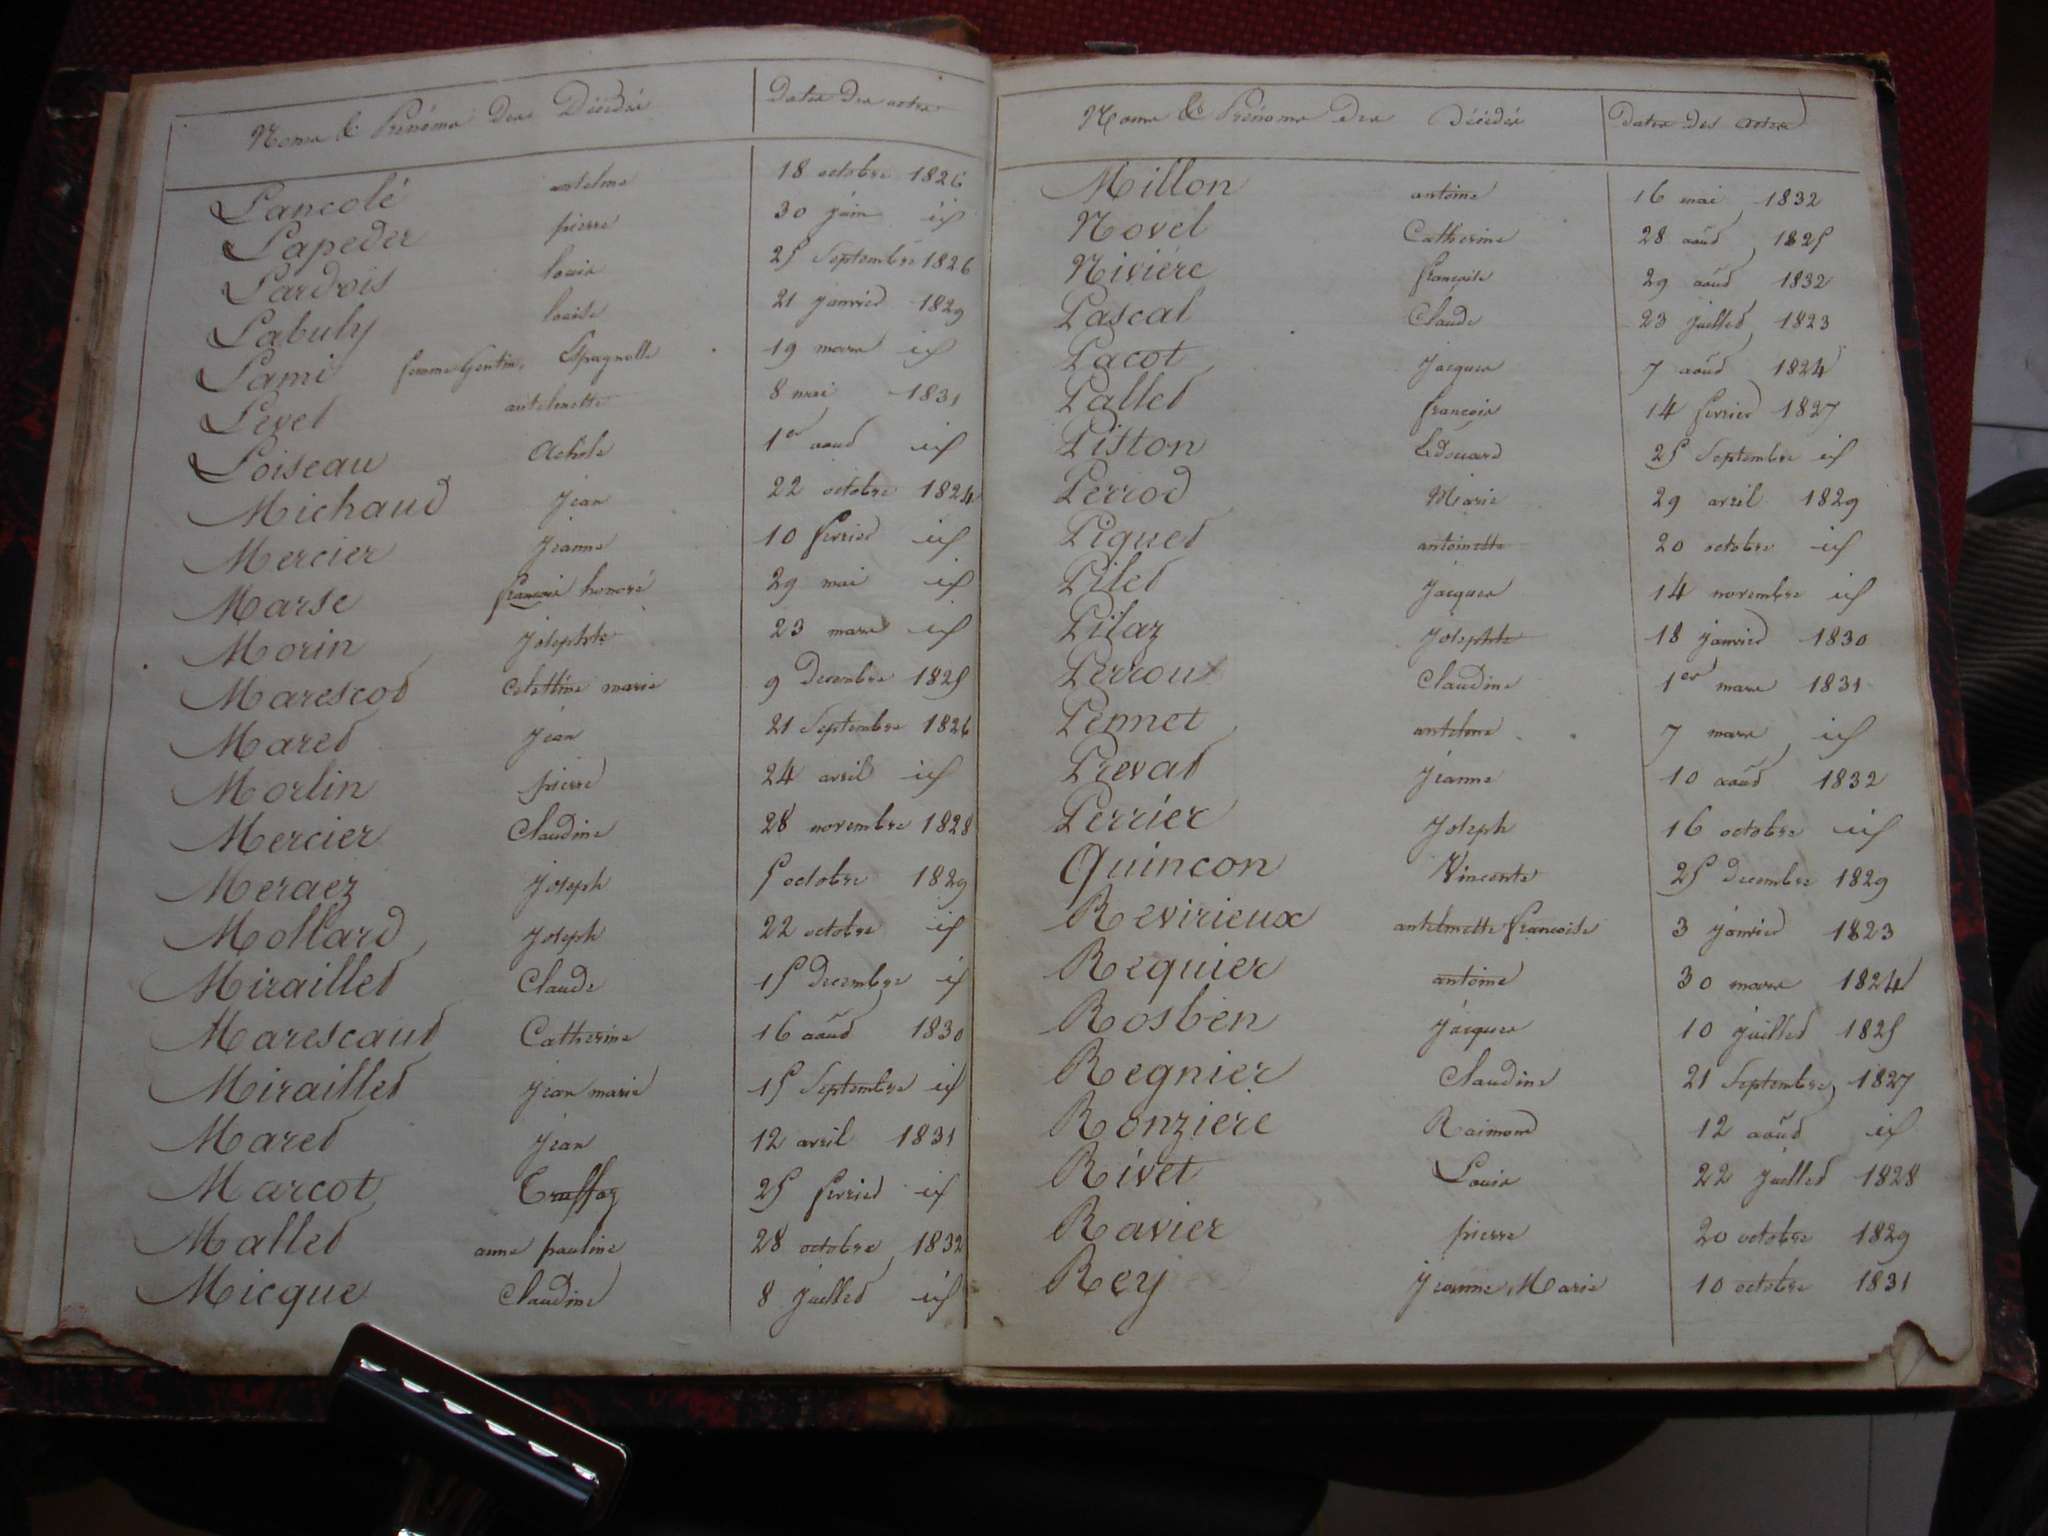 Noms & Prénoms des Décédés Dates des actes
Lancolé antelme 18 octobre 1826
Lapeder pierre 30 juin id
Lardois louis 25 Septembre 1826
Labuly louise 21 janvier 1829
Lami femme Gentin, Espagnolle 19 mars id
Level antelmette 8 mai 1831
Loiseau Achile 1er aout id
Michaud Jean 22 octobre 1824
Mercier Jeanne 10 fevrier id
Marse francois honoré 29 mai id
Morin josephte 23 mars id
Marescot Celestine marie 9 Decembre 1825
Maret Jean 21 Septembre 1826
Morlin pierre 24 avril id
Mercier Claudine 28 novembre 1828
Meraez Joseph 5 octobre 1829
Mollard Joseph 22 octobre id
Miraillet Claude 15 Decembre id
Marescaut Catherine 16 août 1830
Miraillet Jean marie 15 Septembre id
Maret Jean 12 avril 1831
Marcot Truffaz 25 fevrier id
Mallet anne pauline 28 octobre 1832
Micque Claudine 8 juillet id
Noms & Prénoms des Décédés Dates des actes
Millon antoine 16 mai 1832
Novel Catherine 28 août 1825
Niviére francoise 29 août 1832
Pascal Claude 23 juillet 1823
Pacot Jacques 7 août 1824
Pallet francois 14 fevrier 1827
Piston Edouard 25 Septembre id
Perrod Marie 29 avril 1829
Piquet antoinette 20 octobre id
Pilet Jacques 14 novembre id
Pilaz Josephte 18 janvier 1830
Perroux Claudine 1er mars 1831
Pennet antelme 7 mars id
Prevat Jeanne 10 août 1832
Perrier Joseph 16 octobre id
Quincon Vincente 25 decembre 1829
Revirieux antelmette francoise 3 janvier 1823
Requier antoine 30 mars 1824
Rosben Jacques 10 juillet 1825
Regnier Claudine 21 Septembre 1827
Ronziere Raimond 12 août id
Rivet Louis 22 juillet 1828
Ravier pierre 20 octobre 1829
Rey Jeanne Marie 10 octobre 1831